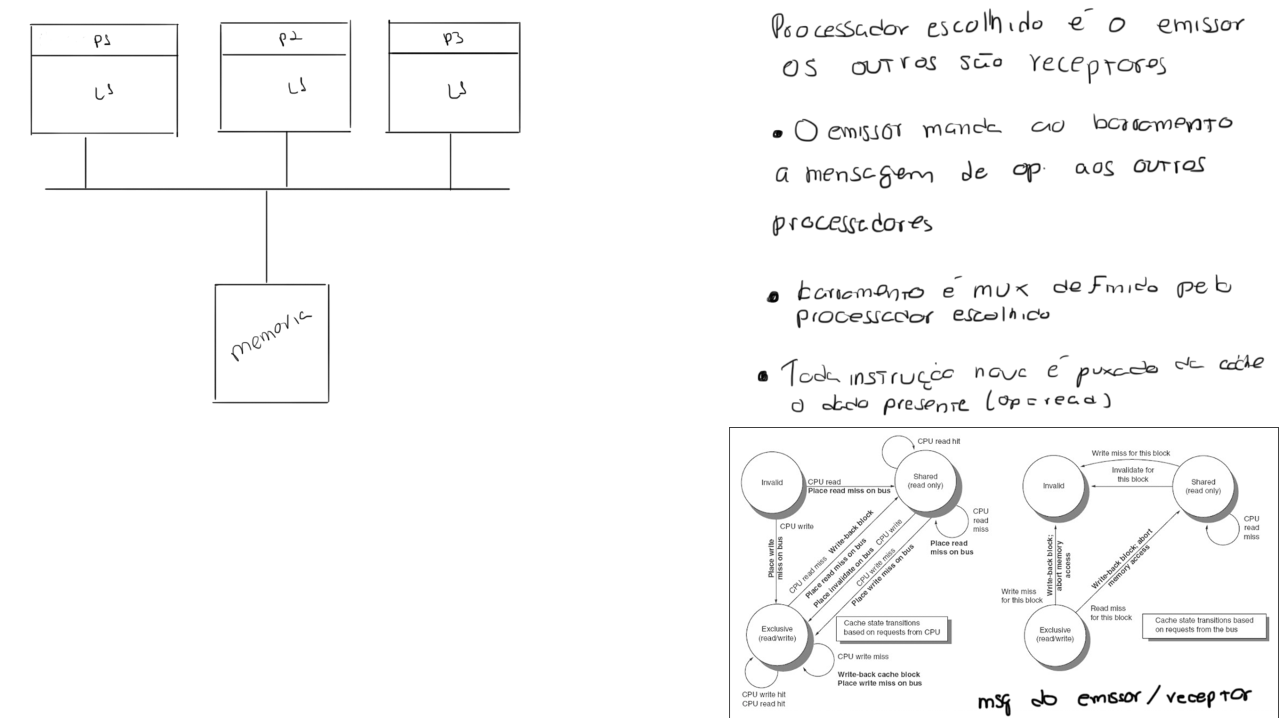 P1
P2
P3
LS
LS
LS
memoria
Processador escolhido é o emissor
os outros são receptores
• O emissor manda ao barramento
a mensagem de op. aos outros
processadores
• barramento é mux definido pelo
processador escolhido
• Toda instrução nova é puxado da cache
o dado presente (op=read)
CPU read hit
Invalid
CPU read
Place read miss on bus
Shared
(read only)
CPU write
Place write
miss on bus
CPU read miss
Write-back block
Place read miss on bus
Place invalidate on bus
CPU write
CPU write miss
Place write miss on bus
CPU
read
miss
Place read
miss on bus
Exclusive
(read/write)
Cache state transitions
based on requests from CPU
CPU write miss
Write-back cache block
Place write miss on bus
CPU write hit
CPU read hit
Write miss for this block
Invalidate for
this block
Invalid
Shared
(read only)
CPU
read
miss
Write-back block;
abort memory
access
Write-back block; abort
memory access
Write miss
for this block
Read miss
for this block
Exclusive
(read/write)
Cache state transitions based
on requests from the bus
msg do emissor/receptor